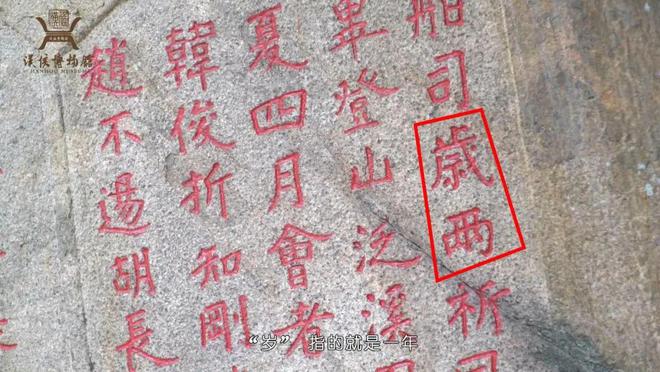 漢侯博物館
HANHOU MUSEUM
舶司歳兩祈
畢登山泛溪
夏四月會者
韓俊折知剛
趙不逷胡長
“岁” 指的就是一年